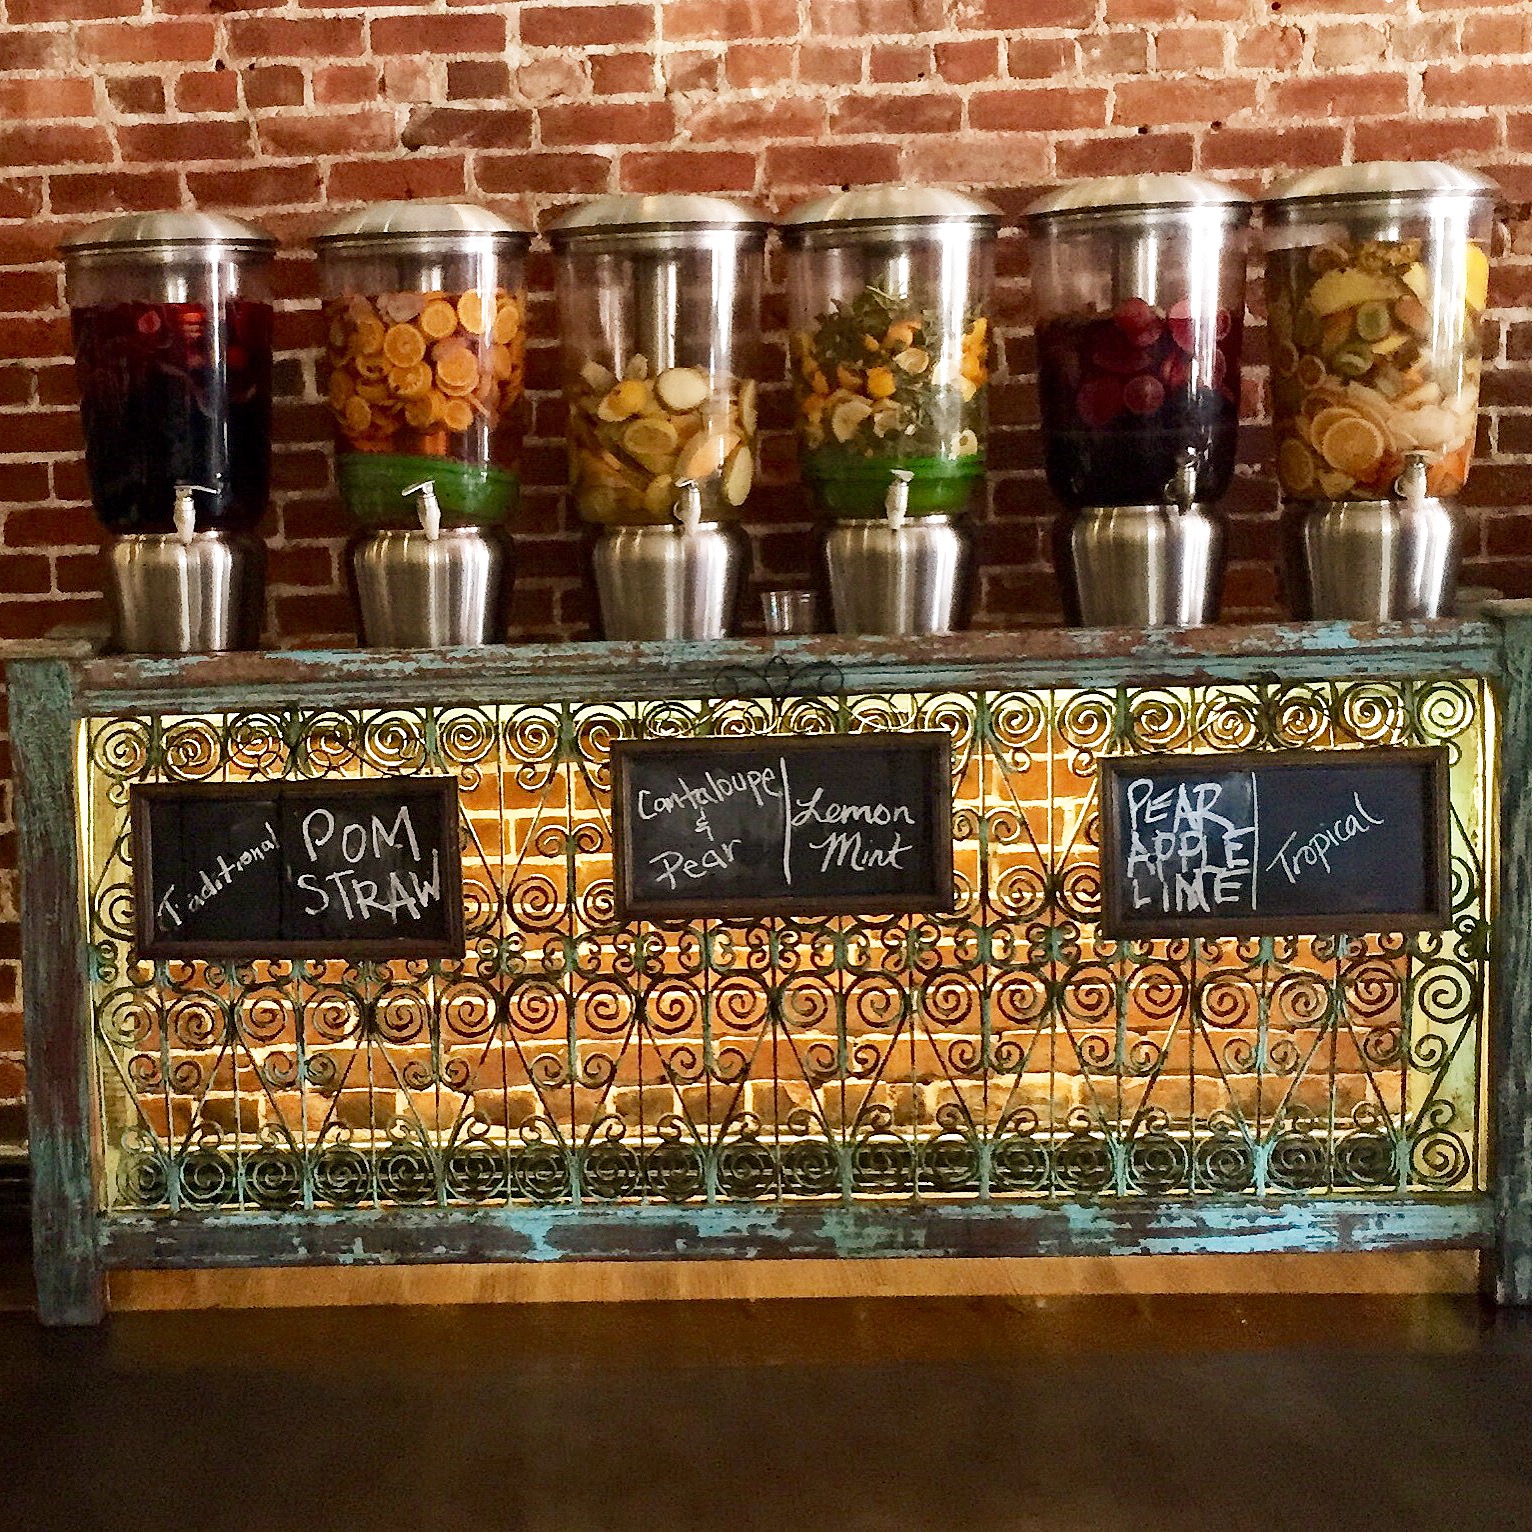 Traditional
POM
STRAW
Cantaloupe
&
Pear
Lemon
Mint
PEAR
APPLE
LIME
Tropical